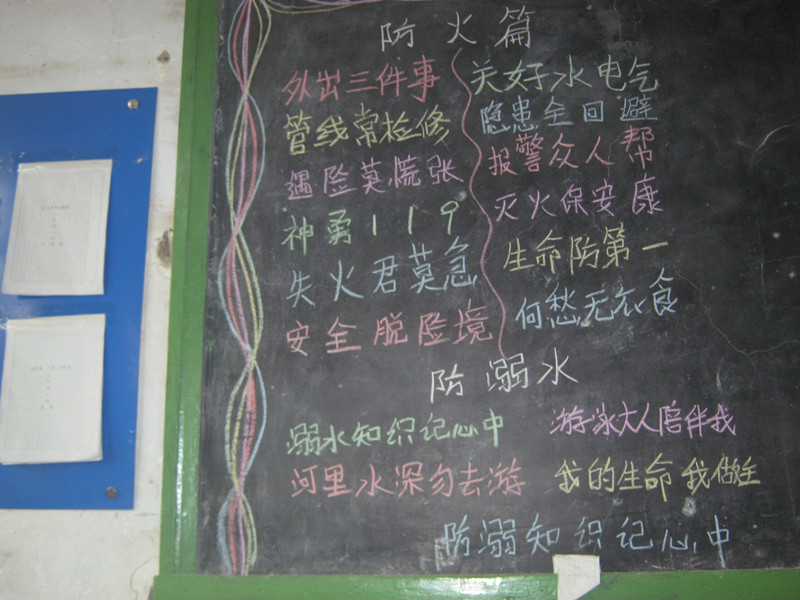 防火篇
外出三件事 关好水电气
管线常检修 隐患全回避
遇险莫慌张 报警众人帮
神勇119 灭火保安康
失火君莫急 生命防第一
安全脱险境 何愁无衣食
防溺水
溺水知识记心中 游泳大人陪伴我
河里水深勿去游 我的生命我做主
防溺知识记心中